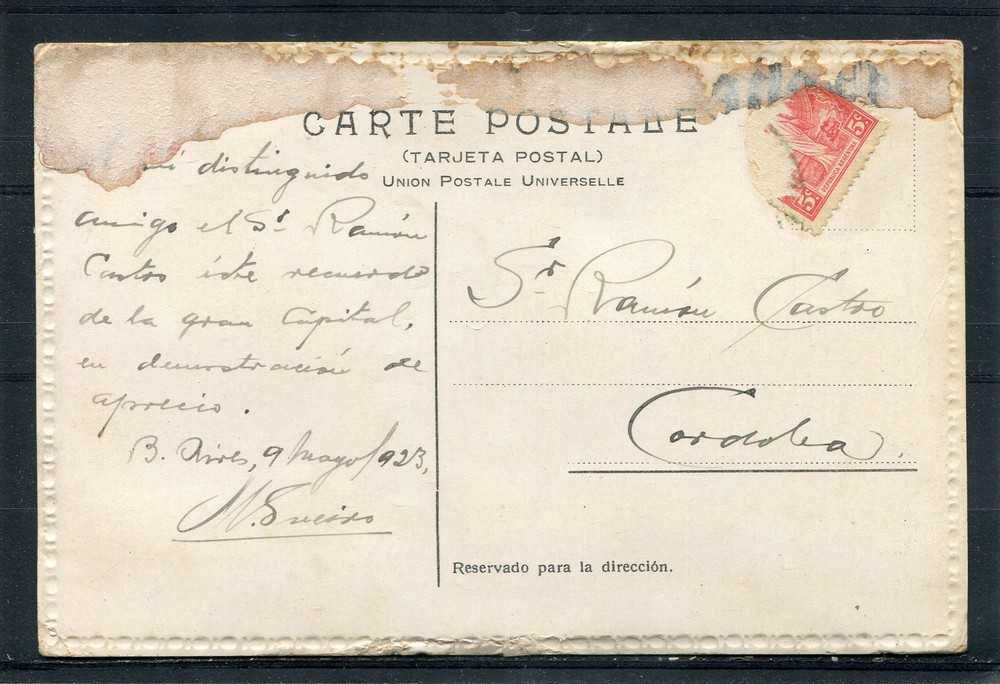 CARTE POSTALE
(TARJETA POSTAL)
UNION POSTALE UNIVERSELLE
mi distinguido
amigo el Sr Ramón
Castro éste recuerdo
de la gran Cápital,
en demostración de
aprecio.
B. Aires, 9 Mayo/923,
M. Sueiro
5c
5c
REPUBLICA ARGENTINA
Sr. Ramón Castro
Cordoba.
Reservado para la dirección.